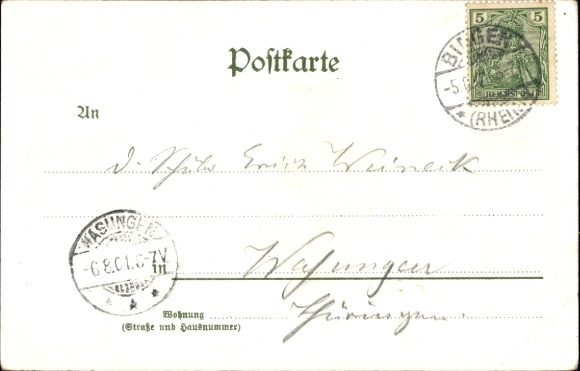 5 5
REICHSPOST
BINGEN
-5.
* (RHEIN)
Postkarte
An
d. Schüler Erich Weineck
WASUNGEN
-6.8.01.6-7V.
* * *
in
Wasungen
Wohnung
(Straße und Hausnummer)
Thüringen